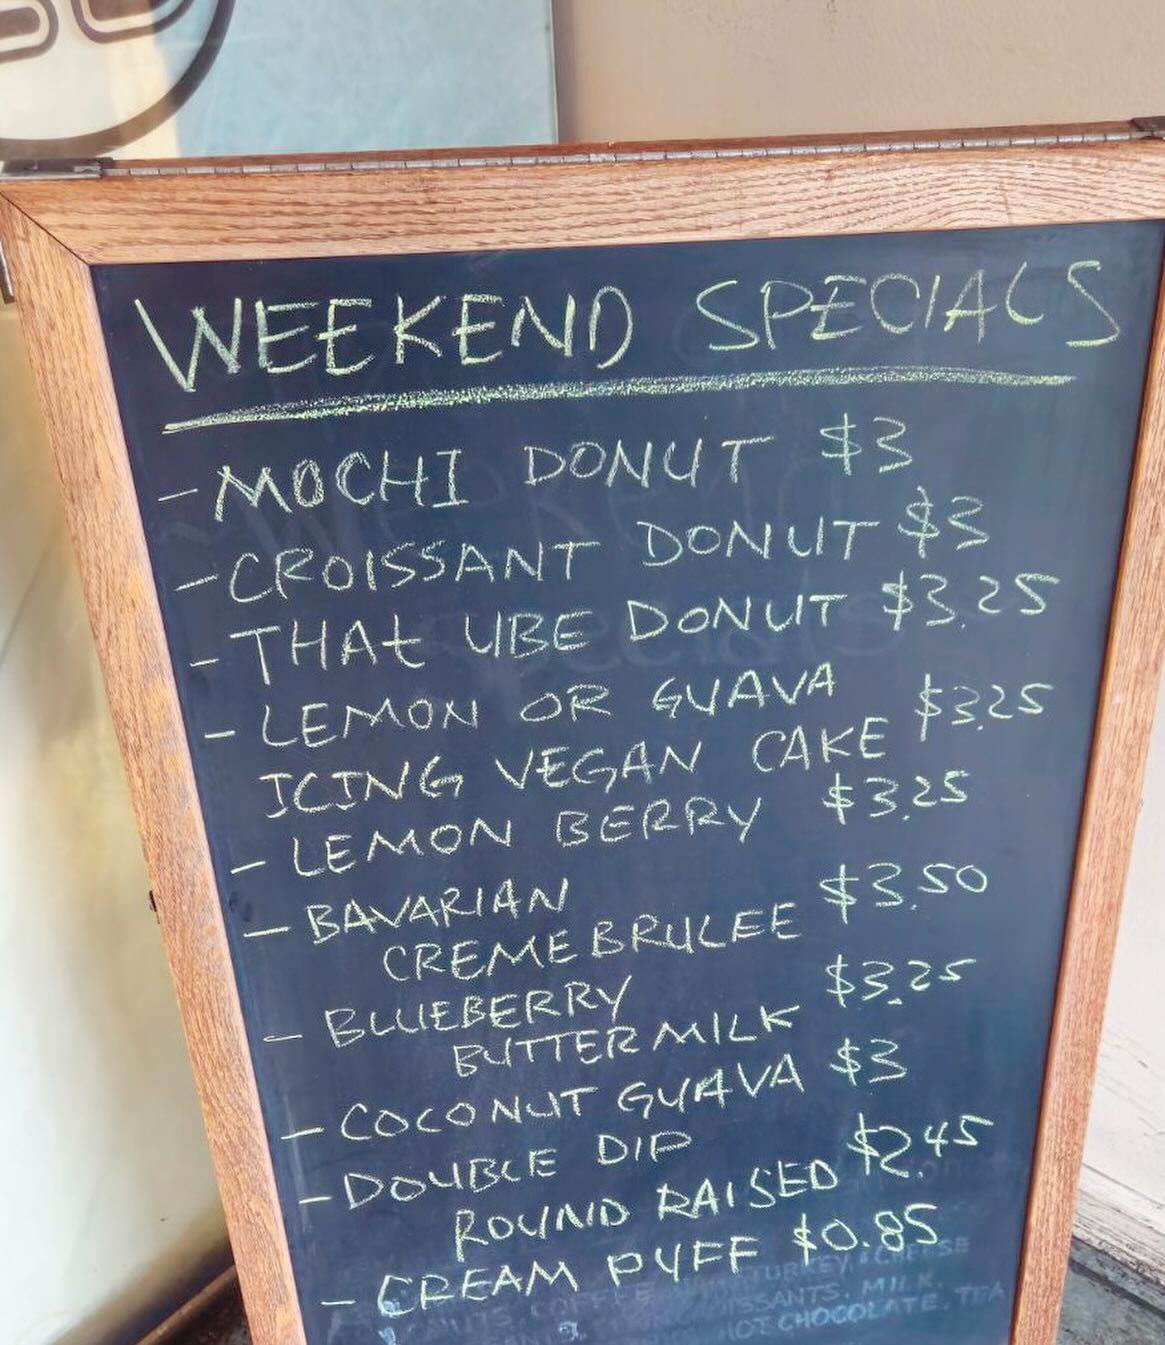 WEEKEND SPECIALS
- MOCHI DONUT $3
- CROISSANT DONUT $3
- THAt UBE DONUT $3.25
- LEMON OR GUAVA
ICING VEGAN CAKE $3.25
- LEMON BERRY $3.25
- BAVARIAN
CREME BRULEE $3.50
- BLUEBERRY
BUTTERMILK $3.25
- COCONUT GUAVA $3
- DOUBLE DIP
ROUND RAISED $2.45
- CREAM PUFF $0.85
TURKEY & CHEESE
MILK
HOT CHOCOLATE. TEA